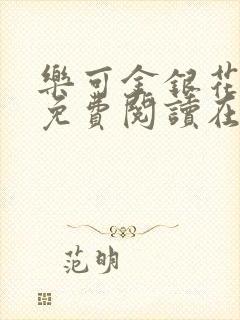 樂可金銀花
免費閱讀在
范明